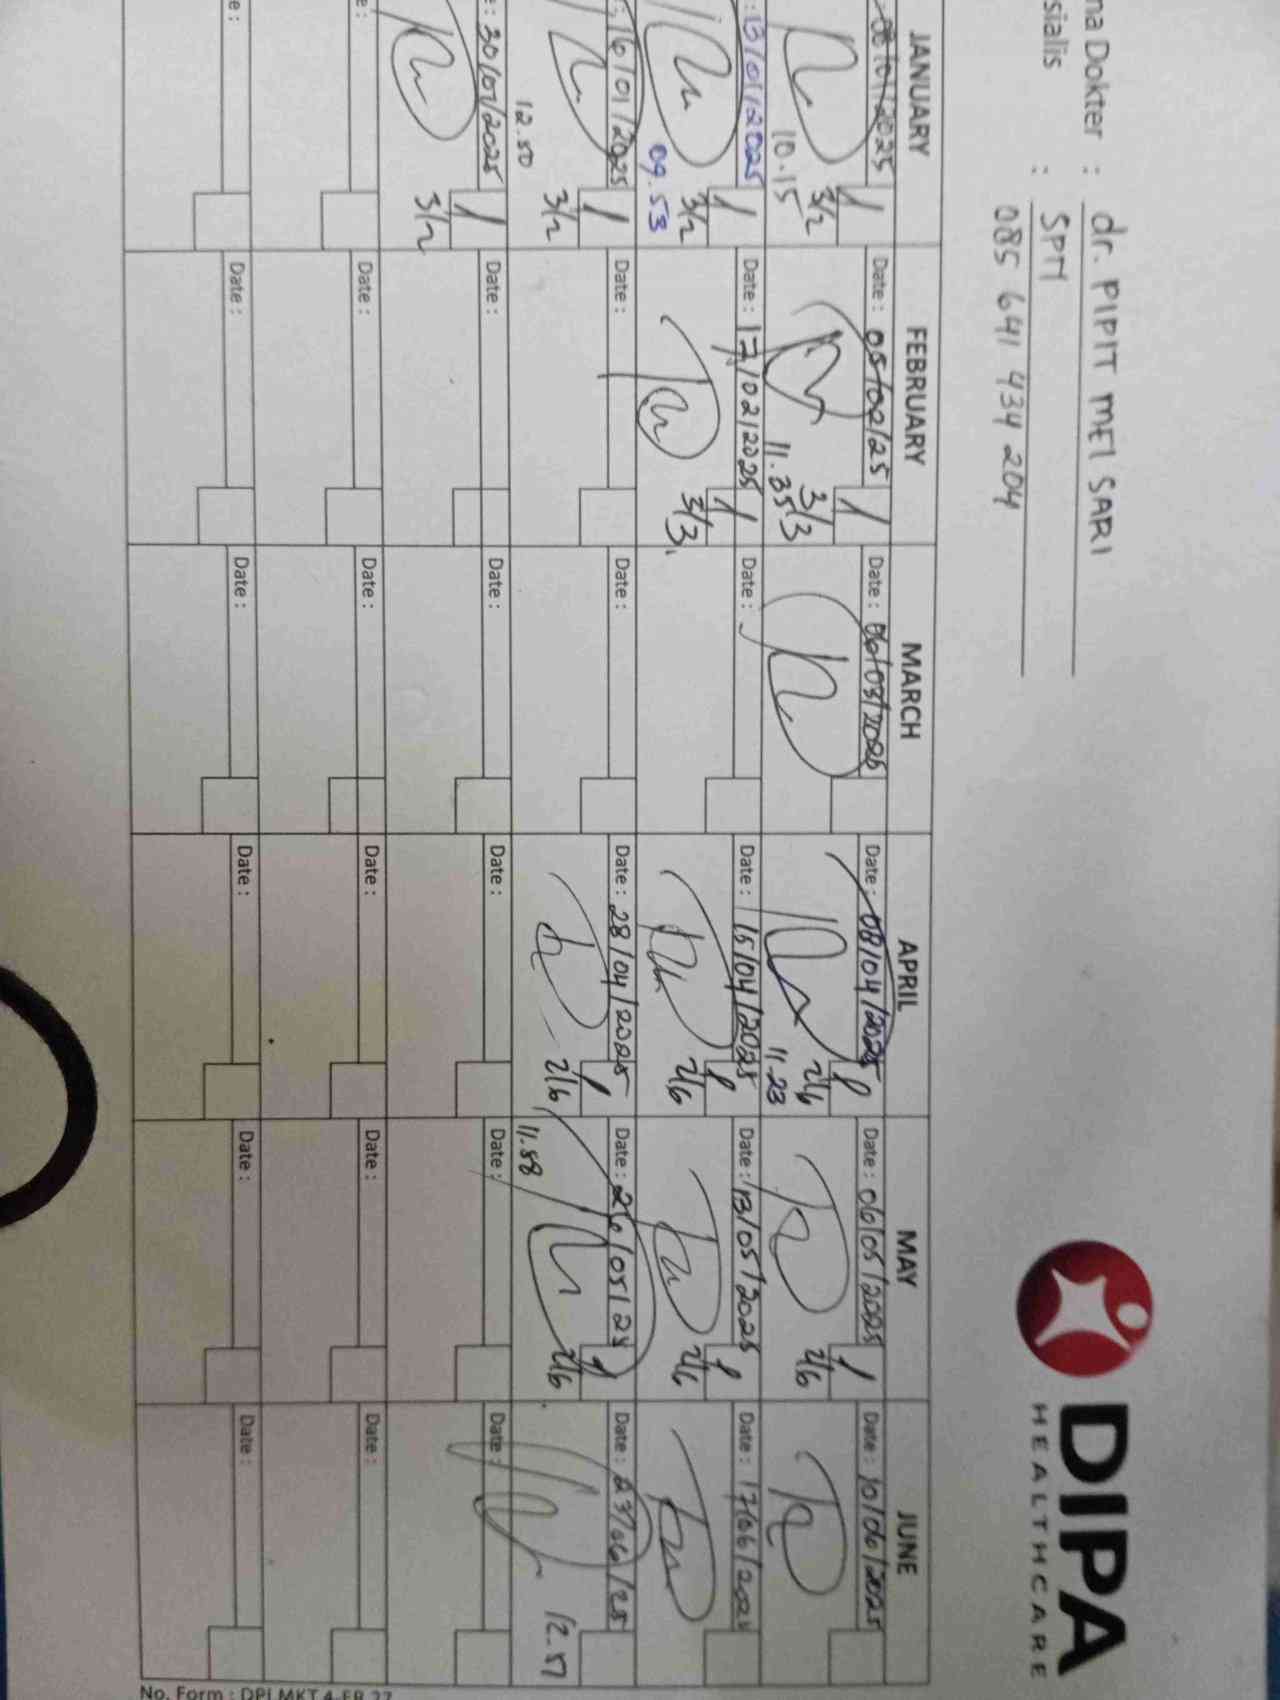 DIPA
HEALTHCARE
na Dokter : dr. PIPIT MEI SARI
sialis : SPM
085 641 434 204
JANUARY FEBRUARY MARCH APRIL MAY JUNE
08/01/2025 Date : 05/02/25 Date : 06/03/2025 Date : 08/04/2025 Date : 06/05/2025 Date : 10/06/2025
3/2 3/3 2/6 2/6
10.15 11.35 11.23
: 13/01/2025 Date : 17/02/2025 Date : Date : 15/04/2025 Date : 13/05/2025 Date : 17/06/2025
3/2 3/3 2/6 2/6
09.53
: 16/01/2025 Date : Date : Date : 28/04/2025 Date : 26/05/25 Date : 23/06/25
3/2 2/6 2/6 12.57
12.50 11.58
e : 30/01/2025 Date : Date : Date : Date : Date :
3/2
e : Date : Date : Date : Date : Date :
e : Date : Date : Date : Date : Date :
No. Form : DPI.MKT.4-FR.27